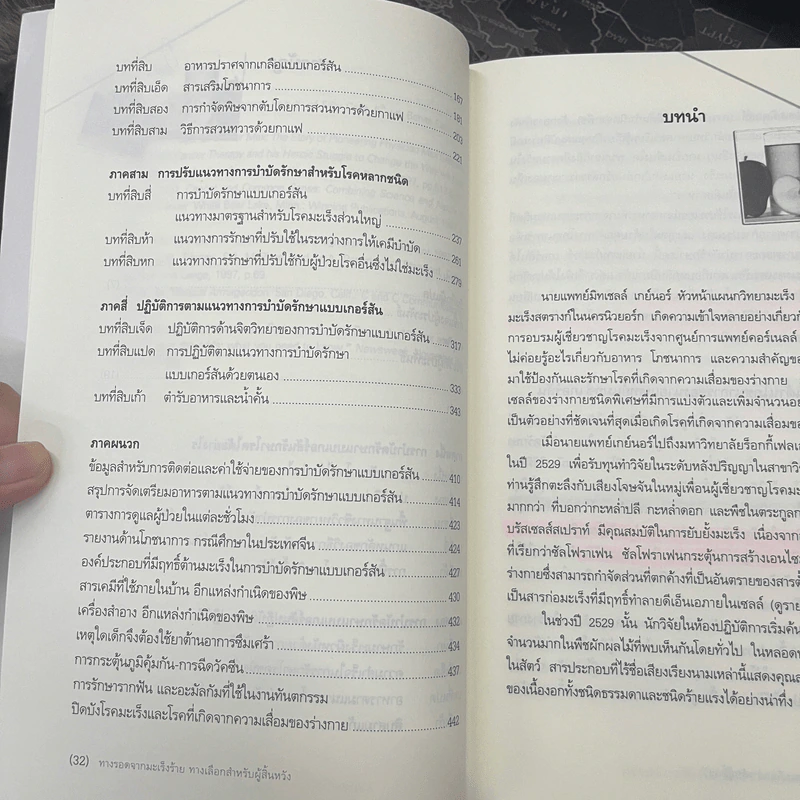 บทที่สิบ อาหารปราศจากเกลือแบบเกอร์สัน 167
บทที่สิบเอ็ด สารเสริมโภชนาการ 181
บทที่สิบสอง การกำจัดพิษจากตับโดยการสวนทวารด้วยกาแฟ 203
บทที่สิบสาม วิธีการสวนทวารด้วยกาแฟ 221
ภาคสาม การปรับแนวทางการบำบัดรักษาสำหรับโรคหลากชนิด
บทที่สิบสี่ การบำบัดรักษาแบบเกอร์สัน
แนวทางมาตรฐานสำหรับโรคมะเร็งส่วนใหญ่ 237
บทที่สิบห้า แนวทางการรักษาที่ปรับใช้ในระหว่างการให้เคมีบำบัด 261
บทที่สิบหก แนวทางการรักษาที่ปรับใช้กับผู้ป่วยโรคอื่นซึ่งไม่ใช่มะเร็ง 279
ภาคสี่ ปฏิบัติการตามแนวทางการบำบัดรักษาแบบเกอร์สัน
บทที่สิบเจ็ด ปฏิบัติการด้านจิตวิทยาของการบำบัดรักษาแบบเกอร์สัน 317
บทที่สิบแปด การปฏิบัติตามแนวทางการบำบัดรักษา
แบบเกอร์สันด้วยตนเอง 333
บทที่สิบเก้า ตำรับอาหารและน้ำคั้น 343
ภาคผนวก
ข้อมูลสำหรับการติดต่อและค่าใช้จ่ายของการบำบัดรักษาแบบเกอร์สัน 410
สรุปการจัดเตรียมอาหารตามแนวทางการบำบัดรักษาแบบเกอร์สัน 414
ตารางการดูแลผู้ป่วยในแต่ละชั่วโมง 423
รายงานด้านโภชนาการ กรณีศึกษาในประเทศจีน 424
องค์ประกอบที่มีฤทธิ์ต้านมะเร็งในการบำบัดรักษาแบบเกอร์สัน 427
สารเคมีที่ใช้ภายในบ้าน อีกแหล่งกำเนิดของพิษ 430
เครื่องสำอาง อีกแหล่งกำเนิดของพิษ 432
เหตุใดเด็กจึงต้องใช้ยาต้านอาการซึมเศร้า 434
การกระตุ้นภูมิคุ้มกัน-การฉีดวัคซีน 437
การรักษารากฟัน และอะมัลกัมที่ใช้ในงานทันตกรรม
ปิดบังโรคมะเร็งและโรคที่เกิดจากความเสื่อมของร่างกาย 442
(32) ทางรอดจากมะเร็งร้าย ทางเลือกสำหรับผู้สิ้นหวัง
บทนำ
นายแพทย์มิทเชลล์ เกย์นอร์ หัวหน้าแผนกวิทยามะเร็ง
มะเร็งสตรางก์ในนครนิวยอร์ก เกิดความเข้าใจหลายอย่างเกี่ยวกับ
การอบรมผู้เชี่ยวชาญโรคมะเร็งจากศูนย์การแพทย์คอร์เนลล์
ไม่ค่อยรู้อะไรเกี่ยวกับอาหาร โภชนาการ และความสำคัญของ
มาใช้ป้องกันและรักษาโรคที่เกิดจากความเสื่อมของร่างกาย
เซลล์ของร่างกายชนิดพิเศษที่มีการแบ่งตัวและเพิ่มจำนวนอย
เป็นตัวอย่างที่ชัดเจนที่สุดเมื่อเกิดโรคที่เกิดจากความเสื่อมของร่
เมื่อนายแพทย์เกย์นอร์ไปถึงมหาวิทยาลัยร็อกกี้เฟลเล
ในปี 2529 เพื่อรับทุนทำวิจัยในระดับหลังปริญญาในสาขาวิ
ท่านรู้สึกตะลึงกับเสียงโจษจันในหมู่เพื่อนผู้เชี่ยวชาญโรคมะ
มากกว่า ที่บอกว่ากะหล่ำปลี กะหล่ำดอก และพืชในตระกูลกะ
บรัสเซลส์สเปราท์ มีคุณสมบัติในการยับยั้งมะเร็ง เนื่องจาก
ที่เรียกว่าซัลโฟราเฟน ซัลโฟราเฟนกระตุ้นการสร้างเอนไซม
ร่างกายซึ่งสามารถกำจัดส่วนที่ตกค้างที่เป็นอันตรายของสารต้
เป็นสารก่อมะเร็งที่มีฤทธิ์ทำลายดีเอ็นเอภายในเซลล์ (ดูราย
ในช่วงปี 2529 นั้น นักวิจัยในห้องปฏิบัติการเริ่มค้น
จำนวนมากในพืชผักผลไม้ที่พบเห็นกันโดยทั่วไป ในหลอดท
ในสัตว์ สารประกอบที่ไร้ชื่อเสียงเรียงนามเหล่านี้แสดงคุณส
ของเนื้องอกทั้งชนิดธรรมดาและชนิดร้ายแรงได้อย่างน่าทึ่ง